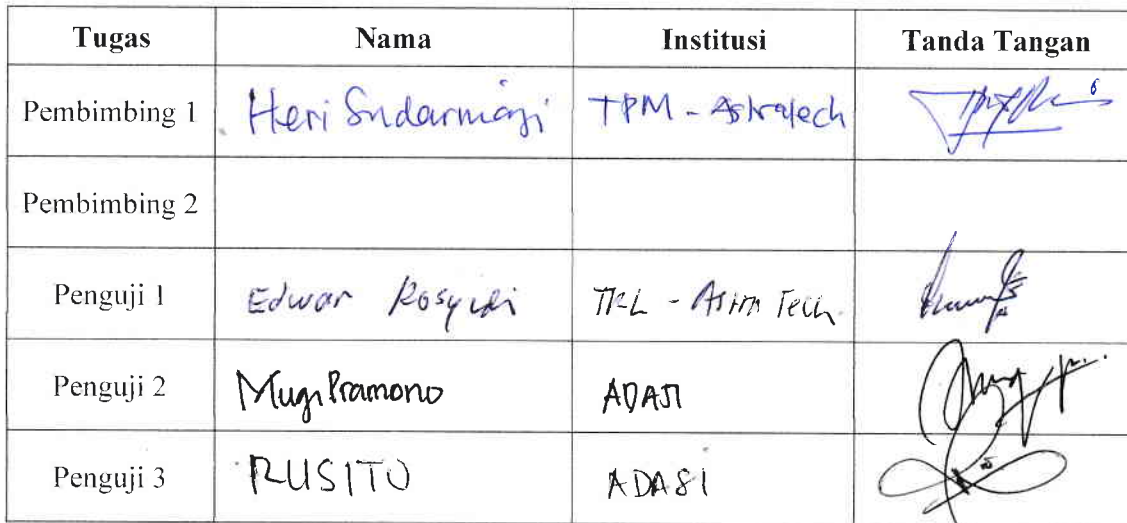 Tugas Nama Institusi Tanda Tangan
Pembimbing 1 Heri Sudarmaji TPM - Astratech
Pembimbing 2
Penguji 1 Edwar Rosyidi TRL - Astra Tech
Penguji 2 Mugi Pramono ADASI
Penguji 3 RUSITO ADASI